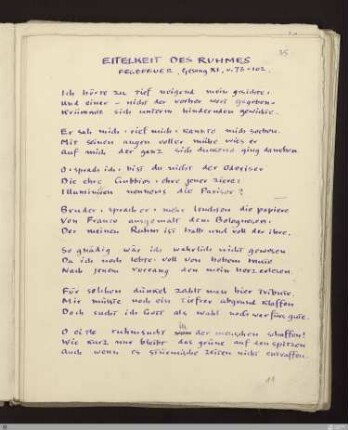 35
EITELKEIT DES RUHMES
FEGEFEUER, Gesang XI, v. 73-102
Ich hörte zu tief neigend mein gesichte.
Und einer – nicht der vorher wort gegeben–
Krümmte sich unterm hindernden gewichte.
Er sah mich · rief mich · kannte mich sodann
Mit seinen augen voller mühe wies er
Auf mich der ganz sich duckend ging daneben.
O · sprach ich · bist du nicht der Oderiser
Die ehre Gubbios · ehre jener zierer
Illuminiren nennens die Pariser?
Bruder · sprach er · mehr leuchten die papiere
Von Franco ausgemalt dem Bolognesen:
Der meinen Ruhm ist halb und voll der ihre.
So gnädig wär ich wahrlich nicht gewesen
Da ich noch lebte: voll von hohem mute
Nach jenem vorrang den mein herz erlesen.
Für solchen dünkel zahlt man hier tribute.
Mir müsste noch ein tiefrer abgrund klaffen
Doch sucht ich Gott als wahl noch war fürs gute.
O eitle ruhmsucht in der menschen schaffen!
Wie kurz nur bleibt das grüne auf den spitzen
Auch wenn es stürmische zeiten nicht entraffen.